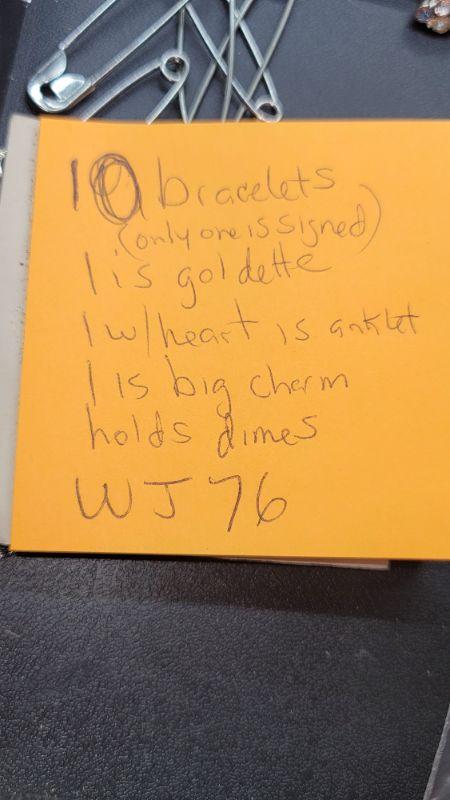 10 bracelets
(only one is signed)
1 is goldette
1 w/heart is anklet
1 is big charm
holds dimes
WJ 76